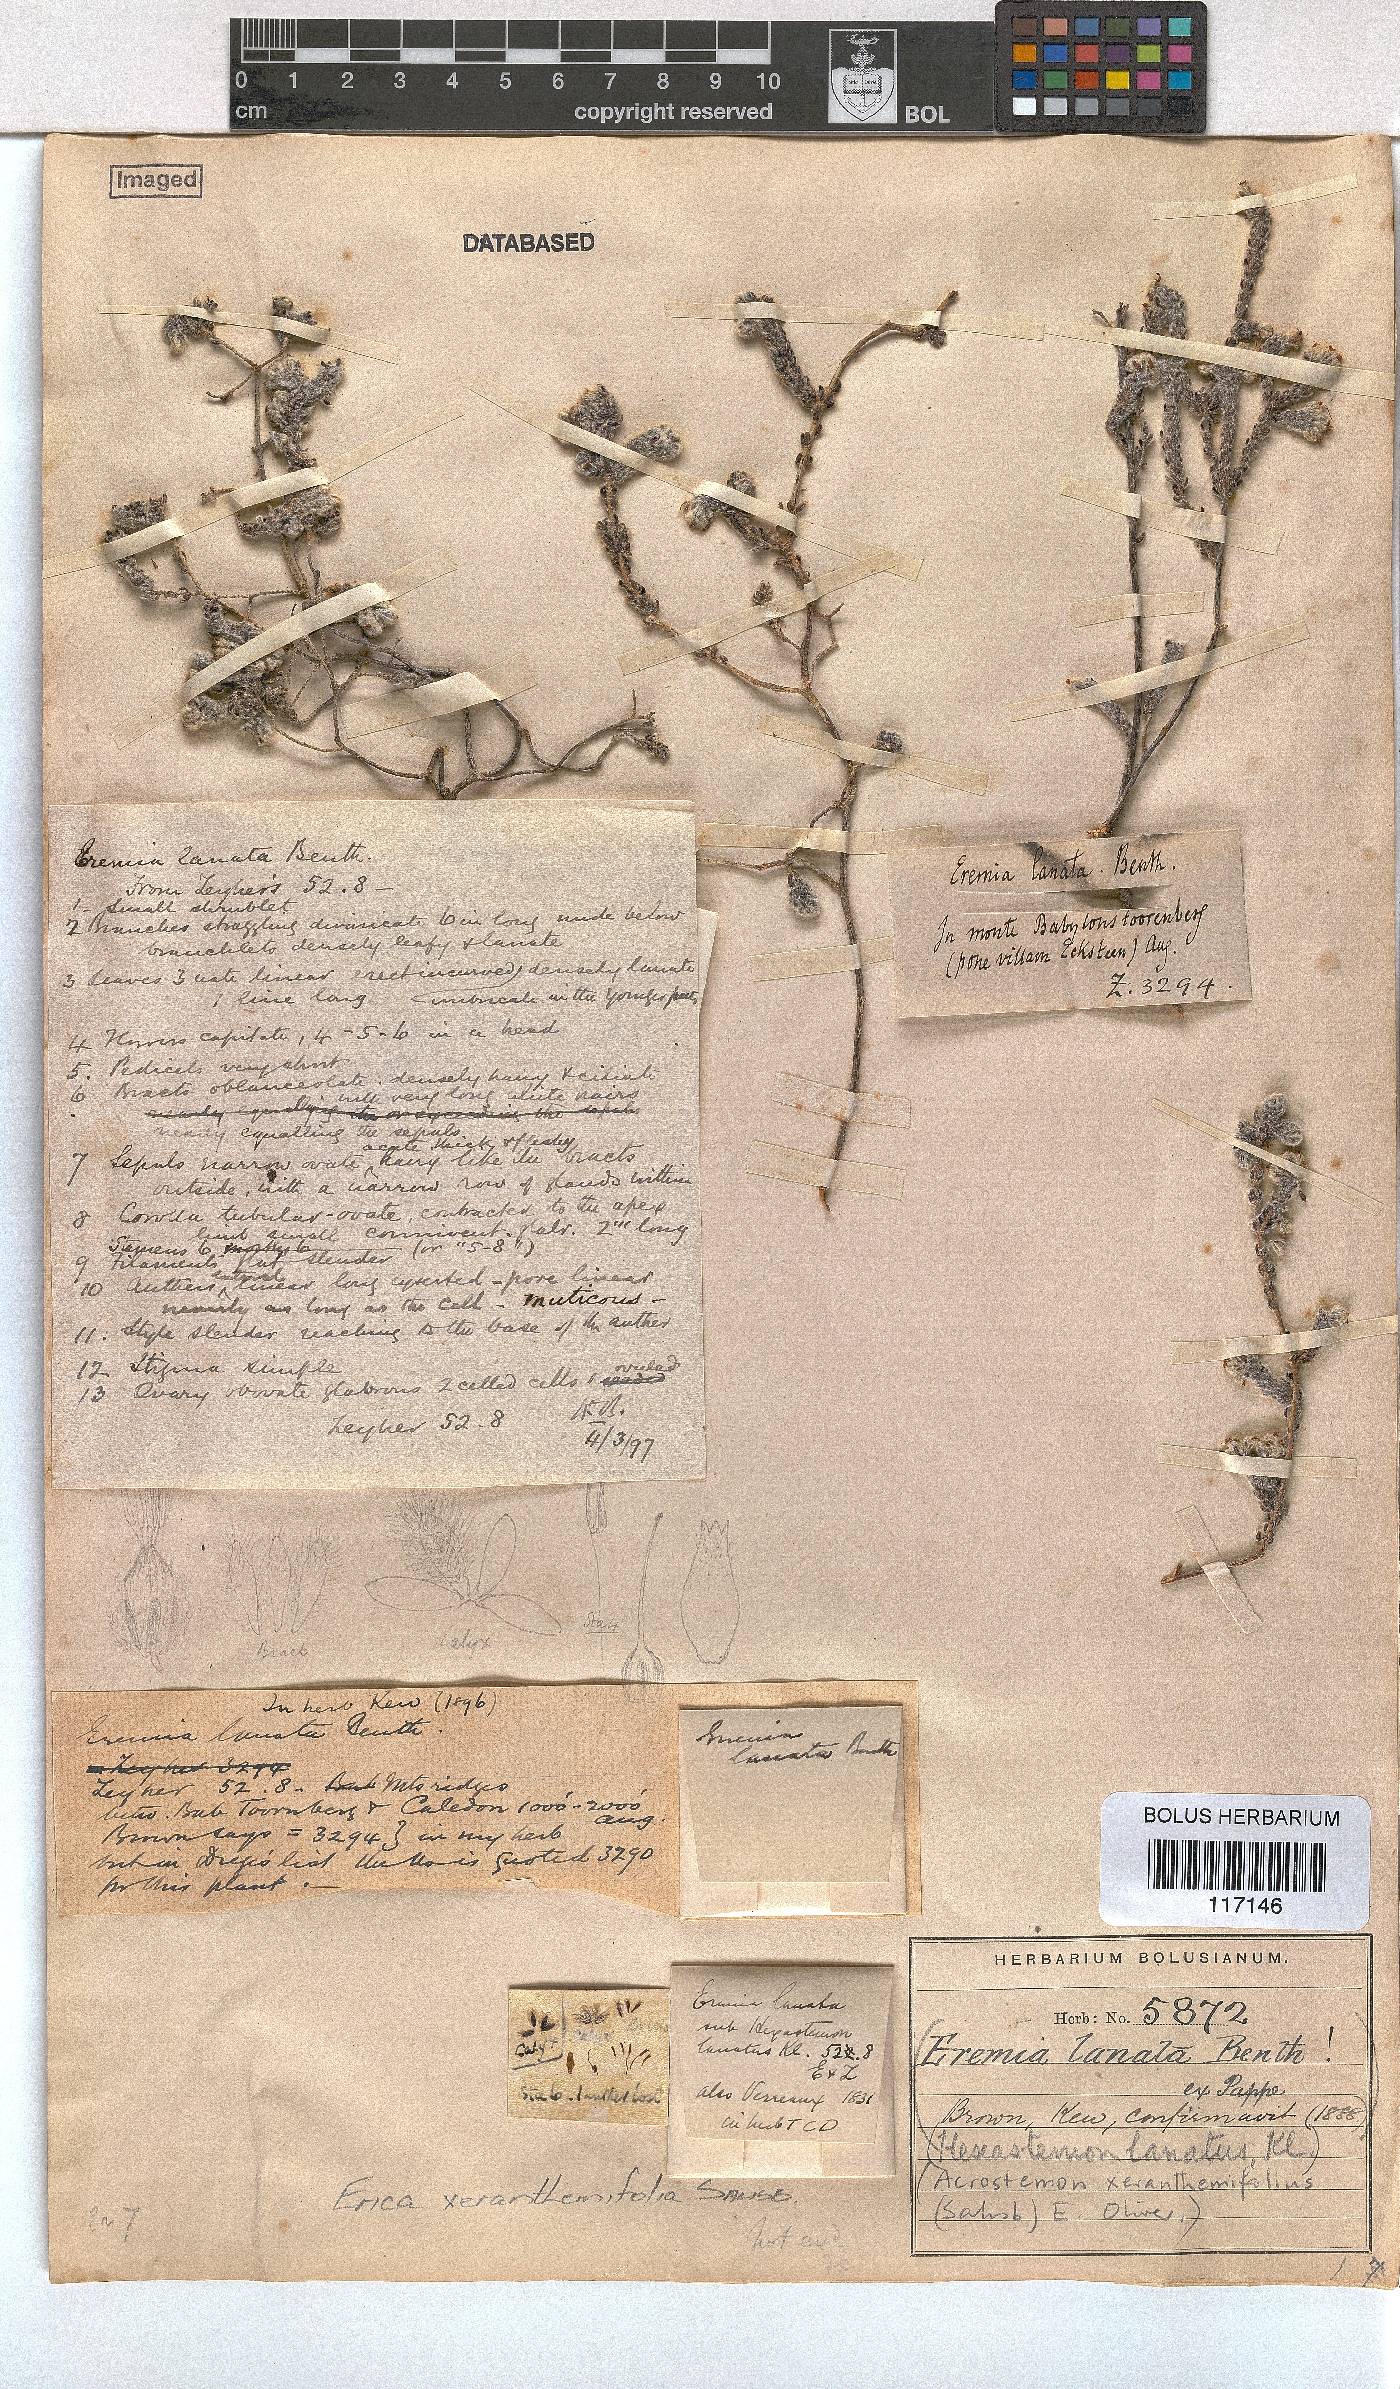 0 1 2 3 4 5 6 7 8 9 10
cm
copyright reserved
BOL
Imaged
DATABASED
Eremia lanata Benth.
From Zeyher's 52.8 -
1 Small shrublet
2 Branches straggling divaricate 6 in long nude below
branchlets densely leafy & lanate
3 Leaves 3 nate linear erect incurved, densely lanate
1 line long imbricate in the younger parts
4 Flowers capitate, 4-5-6 in a head
5. Pedicels very short
6 Bracts oblanceolate, densely hairy & ciliate
with very long white hairs
nearly equalling the or exceeding the sepals
nearly equalling the sepals
acute thick & fleshy
7 Sepals narrow ovate, hairy like the bracts
outside, with a narrow row of glands within
8 Corolla tubular-ovate, contracted to the apex
limb small connivent. glabr. 2''' long
Stamens 6 (or "5-8")
9 Filaments flat slender
10 Anthers linear long exserted - pore linear
nearly as long as the cell - muticous -
11. Style slender reaching to the base of the anther
12 Stigma simple
13 Ovary obovate glabrous 2 celled cells 1 ovuled
Zeyher 52.8
4/3/97
Eremia lanata. Benth.
In monte Babylons toorenberg
(pone villam Eksteen) Aug.
Z. 3294.
Bract
Calyx
Stam
In herb Kew (1896)
Eremia lanata Benth.
Zeyher 3294
Zeyher 52.8 - Bab Mts ridges
betw. Bab Toornberg & Caledon 1000'-2000'
Aug.
Brown says = 3294 } in my herb
but in Drege's list the No is quoted 3290
for this plant. -
Eremia
lanata Benth
BOLUS HERBARIUM
117146
Eremia lanata
sub Hexastemon
lanatus Kl. 52.8
E & Z
also Verreaux 1831
in herb T C D
Calyx
Sta 6. 1 anther lost
HERBARIUM BOLUSIANUM.
Herb: No. 5872
(Eremia lanata Benth!
ex Pappe
Brown, Kew, confirmavit (1888)
(Hexastemon lanatus, Kl.)
(Acrostemon xeranthemifolius
(Salisb) E. Oliver.)
Erica xeranthemifolia Salisb.
7